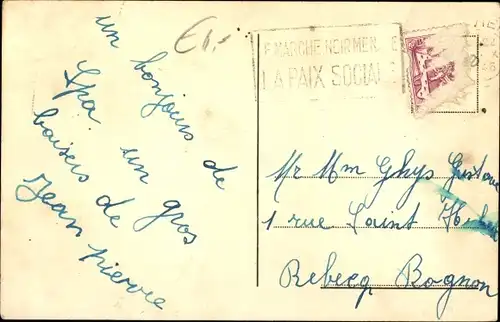 un bonjour de
Spa un gros
baisers de
Jean pierre
€1,-
LE MARCHE NOIR MENACE
LA PAIX SOCIALE
Mr Mm Ghys Gustave
1 rue Saint Hubert
Rebecq Rognon